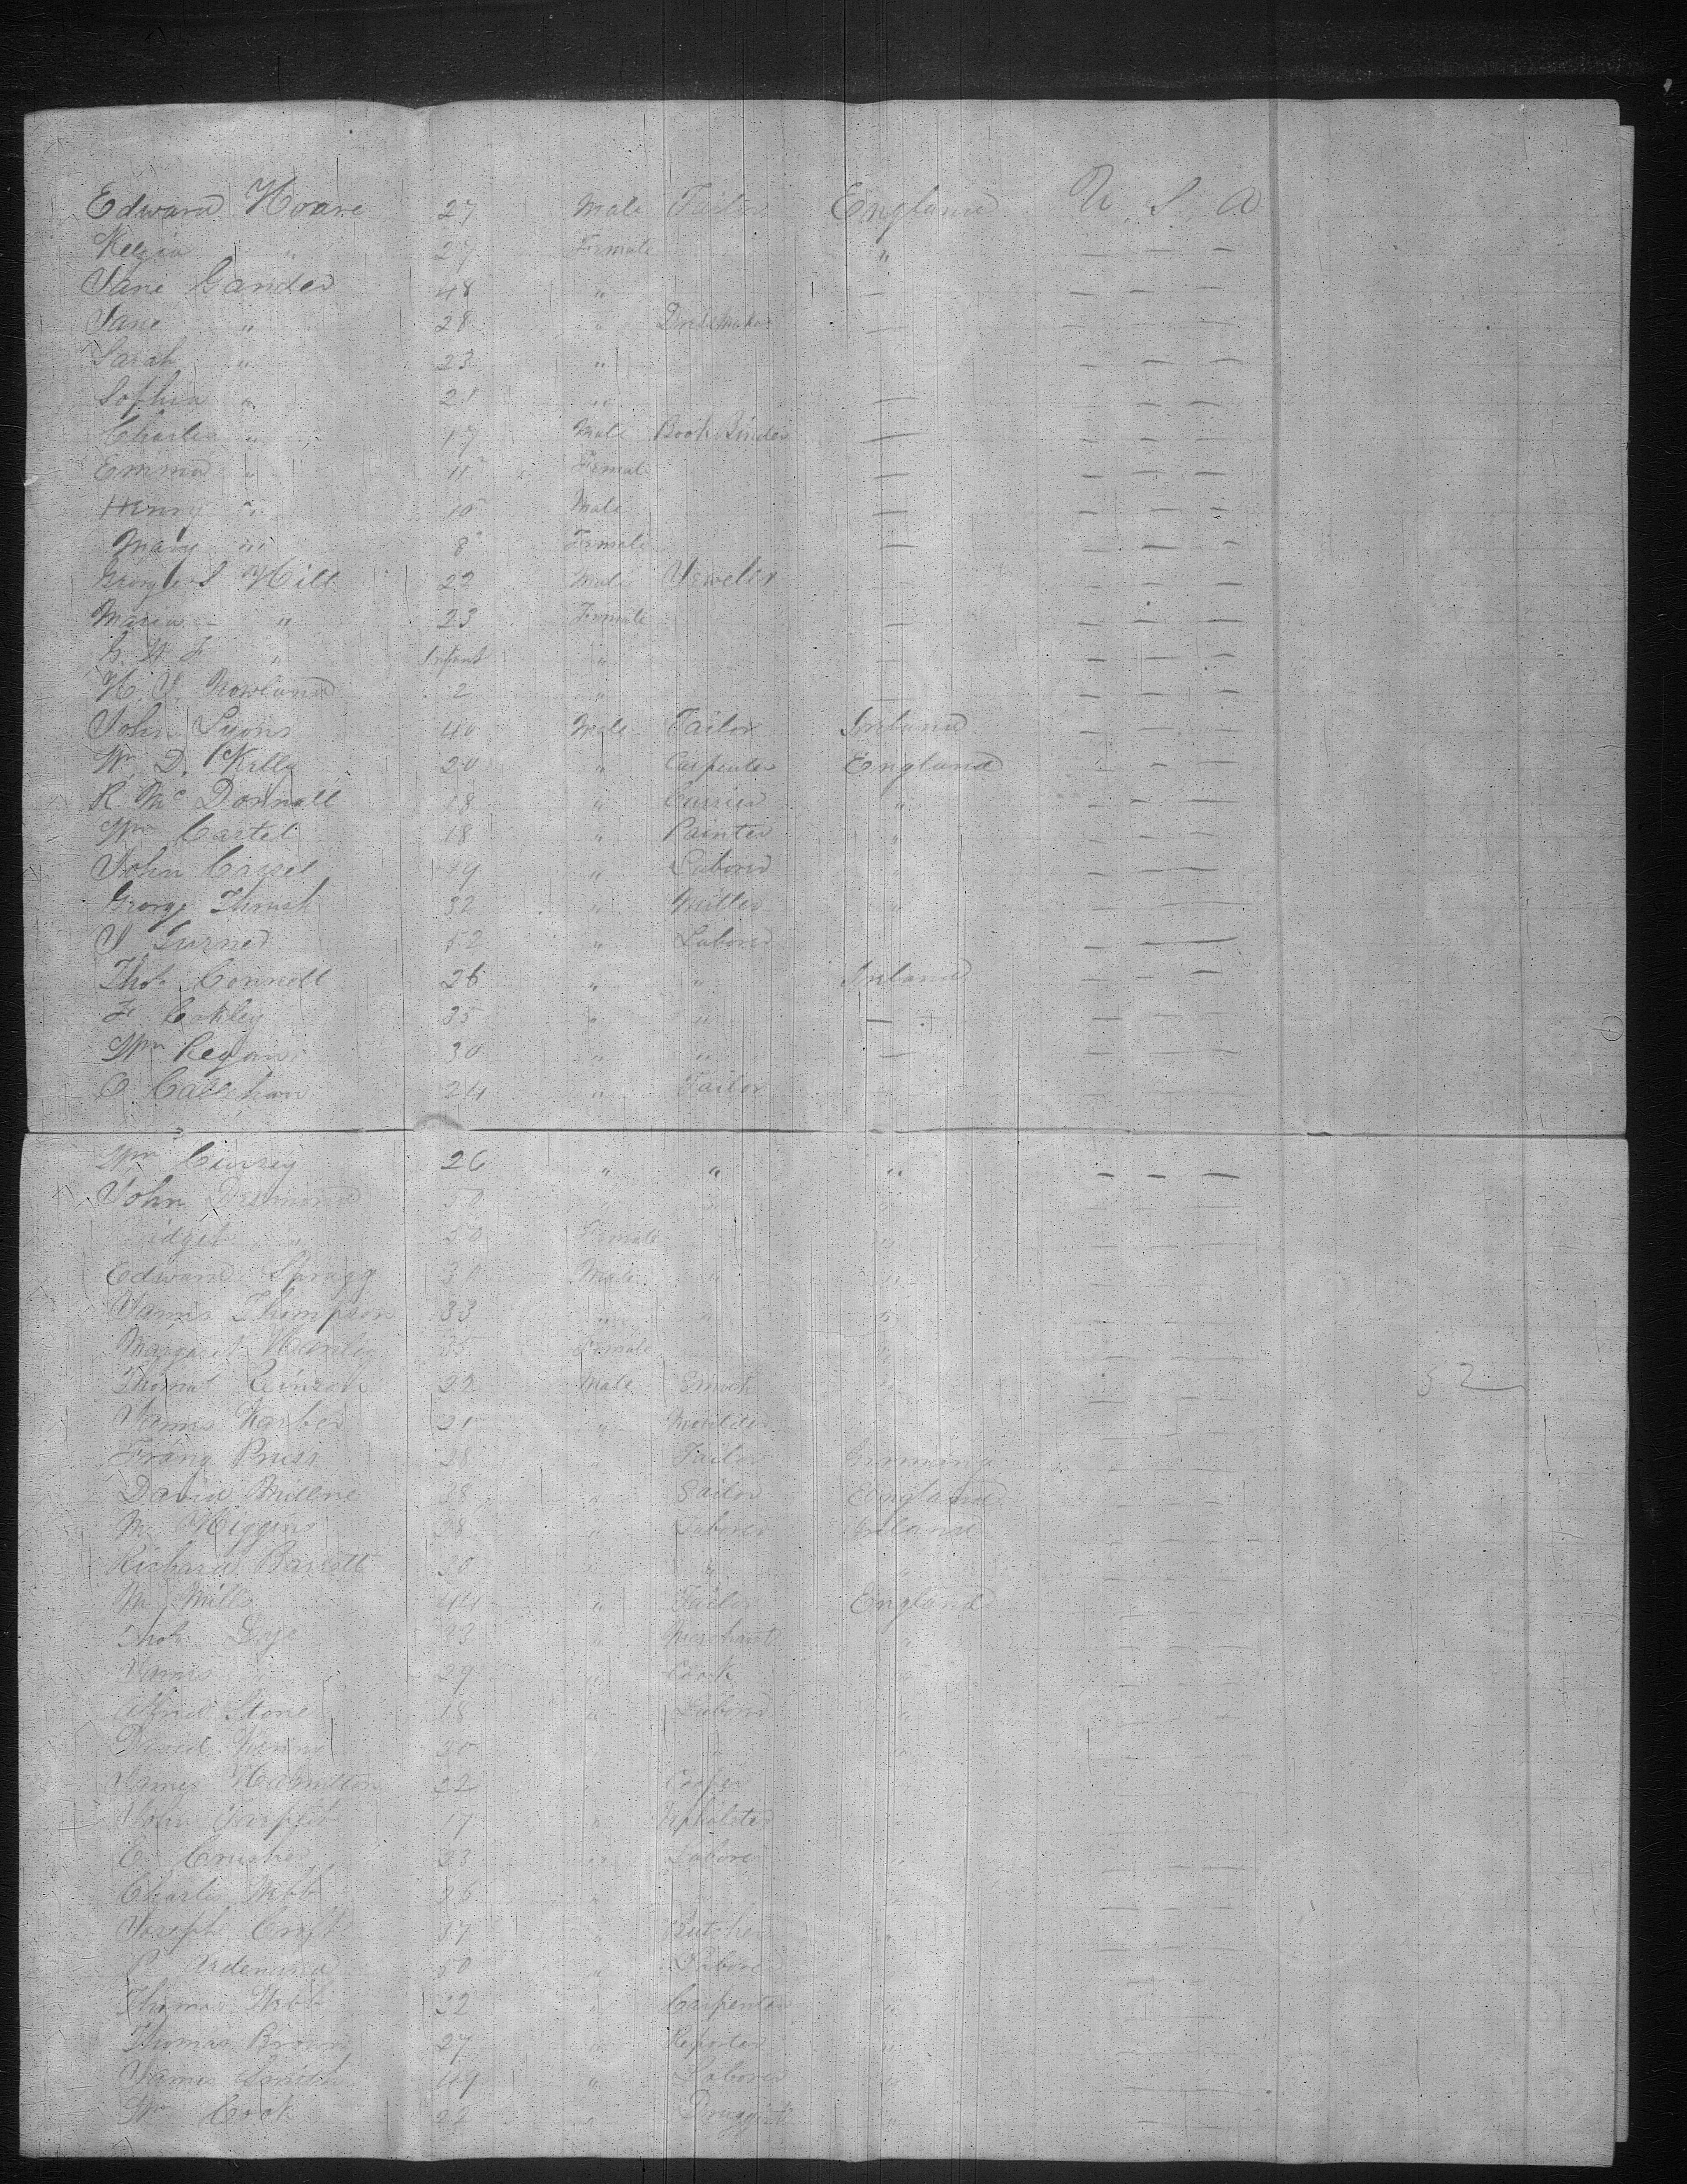 Edward Hoare 27 Male Tailor England U. S. A
Kezia " 27 Female "
Jane Gander 48 " — — — —
Jane " 28 " Dressmaker — — — —
Sarah " 23 " — — —
Sophia " 21 " — — — —
Charles " 17 Male Book Binder — — — —
Emma " 11 Female — — — —
Henry " 10 Male — — — —
Mary " 8 Female — — — —
George S Hill 22 Male Jeweler — — — —
Maria " 23 Female — — — —
G. W. F " Infant " — — — —
H. J. Rowland 2 " — — — —
John Lyons 40 Male Tailor Ireland — — —
Wm D. Kelly 20 " Carpenter England — — —
R. McDonnall 18 " Currier " — — —
Wm Cartel 18 " Painter " — — —
John Cassel 19 " Laborer " — —
George Thrush 32 " Miller " — —
J Turner 52 " Laborer — —
Thos Connell 26 " " Ireland — — —
F. Coakley 35 " " — — — —
Wm Regan 30 " " — — — —
Callahan 24 " Tailor — — — —
Wm Cursey 26 " " " — — —
John Desmond 50 " " " — — —
50 Female " — — —
Edward Spragg 30 Male " " — — —
James Thompson 33 " " " — — —
Margaret Hanley 35 Female " — — —
Thomas 22 Male Smith " — — — 52
James Harber 21 " Moulder — — —
Franz Pruss 28 " Tailor Germany — — —
David Millne 38 " Sailor England — — —
M. Higgins 28 " Laborer Ireland — — —
Richard Barrett 30 " " " — — —
M Mills 44 " Tailor England — — —
Thos Daye 23 " Merchant " — — —
James " 29 " Cook " — — —
Alfred Stone 18 " Laborer " — — —
David 20 " " " — — —
James Hamilton 22 " Cooper — — —
John 17 " Upholster " — — —
E. Crusher 23 " Laborer " — — —
Charles Webb 26 " " — — —
Joseph Croft 37 " Butcher " — — —
P. 50 " Laborer — — —
Thomas Webb 32 " Carpenter " — — —
Thomas Brown 27 " Reporter " — — —
James Smith 49 " Laborer " — — —
Wm Cook 22 " Druggist " — — —